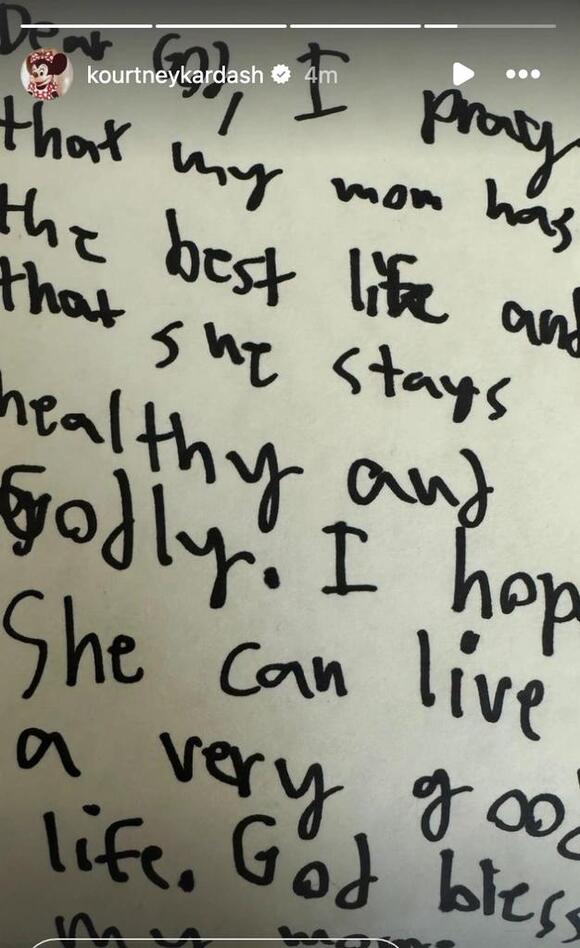 Dear God, I
kourtneykardash 4m
pray
that my mom has
the best life and
that she stays
healthy and
Godly. I hop
She can live
a very good
life. God bless
my mom